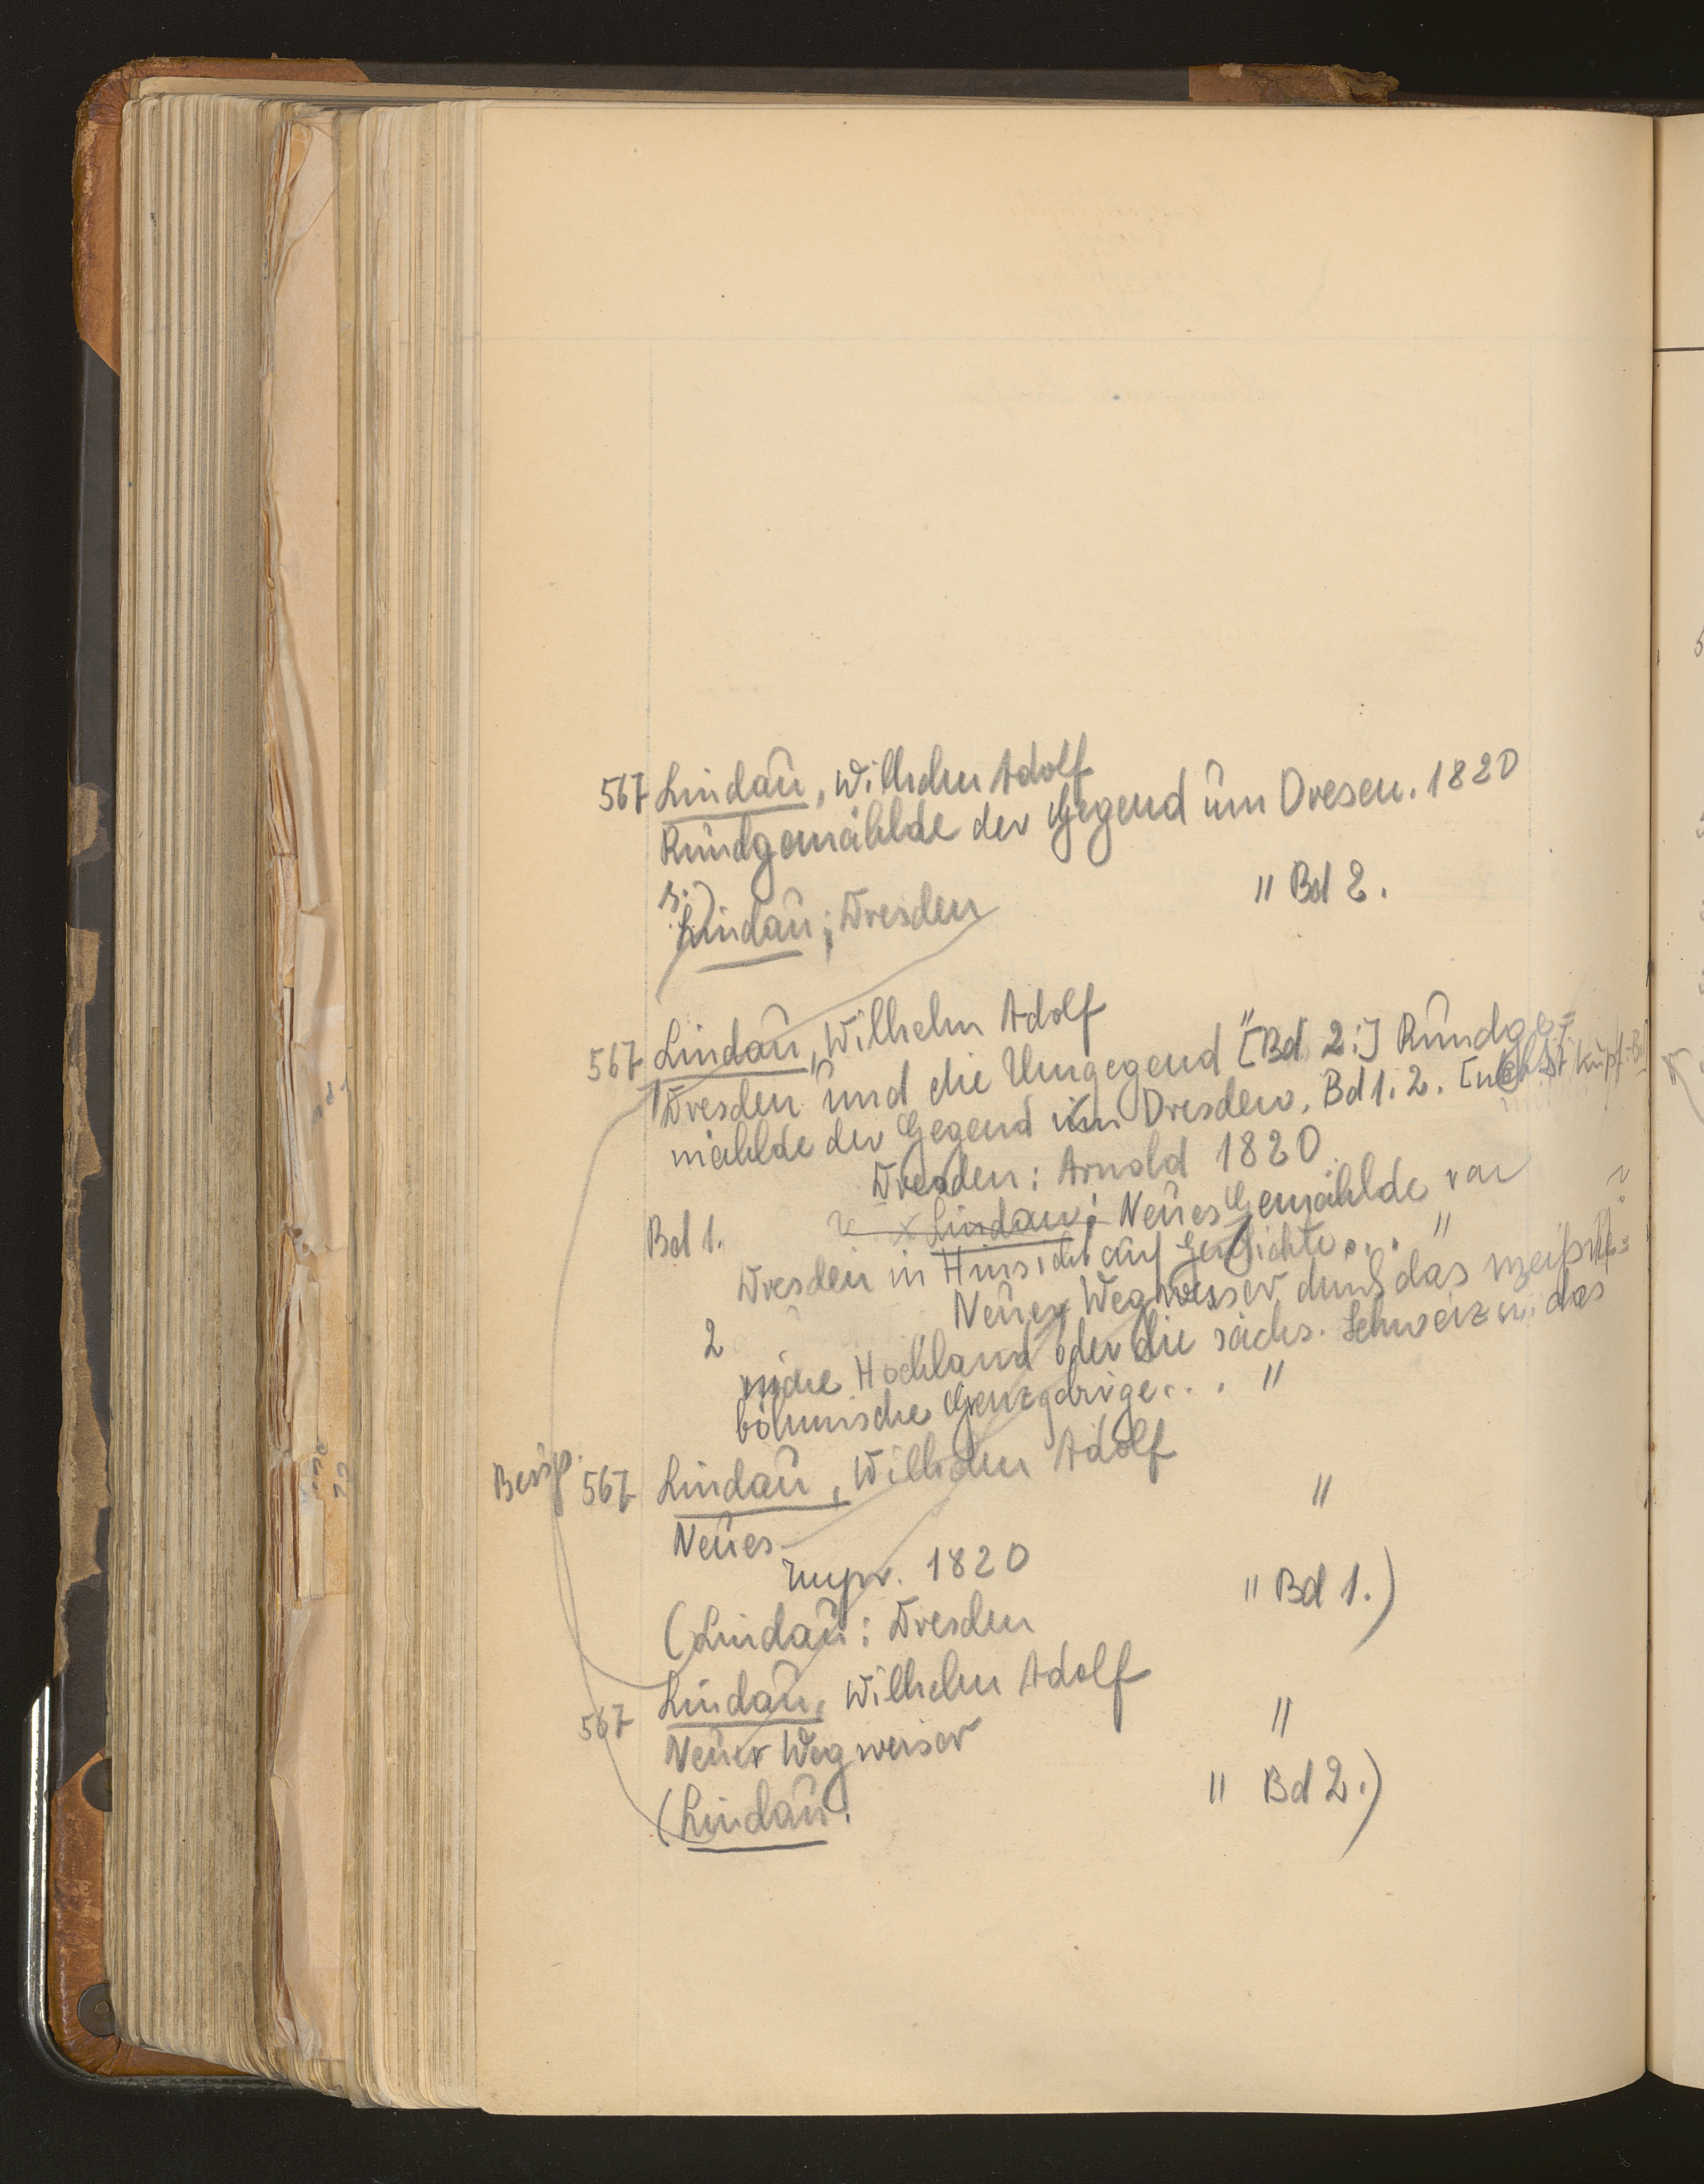 567 Lindau, Wilhelm Adolf
Rundgemählde der Gegend um Dresen. 1820
s.
Lindau; Dresden " Bd 2.
567 Lindau, Wilhelm Adolf
Dresden und die Umgegend [Bd 2:] Rundge=
mählde der Gegend um Dresden. Bd 1. 2. [nebst Kupf. Bd]
Dresden: Arnold 1820
Bd 1. Lindau: Neues Gemählde von
Dresden in Hinsicht auf Geschichte... "
2 Neuer Wegweiser durch das meißn=
ische Hochland oder die sächs. Schweiz u. das
böhmische Grenzgebirge... "
567 Lindau, Wilhelm Adolf
Neues "
1820
(Lindau: Dresden " Bd 1.)
567 Lindau, Wilhelm Adolf
Neuer Wegweiser "
(Lindau: " Bd 2.)